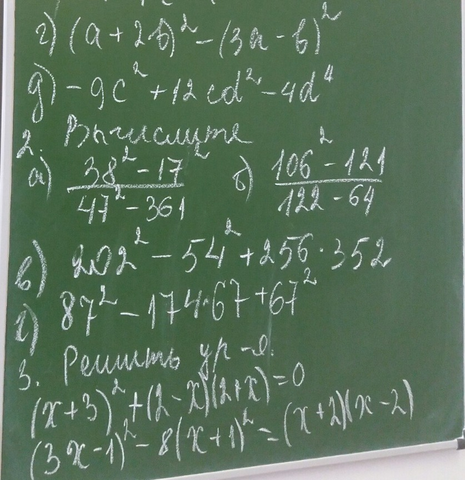 г) (a + 2b)² - (3a - b)²
д) - 9c² + 12cd² - 4d⁴
2. Вычислите
а) (38² - 17²)/(47² - 361) б) (106² - 121)/(122 - 64)
в) 202² - 54² + 256 · 352
г) 87² - 174 · 67 + 67²
3. Решить ур-е.
(x + 3)² + (2 - x)(2 + x) = 0
(3x - 1)² - 8(x + 1)² = (x + 2)(x - 2)